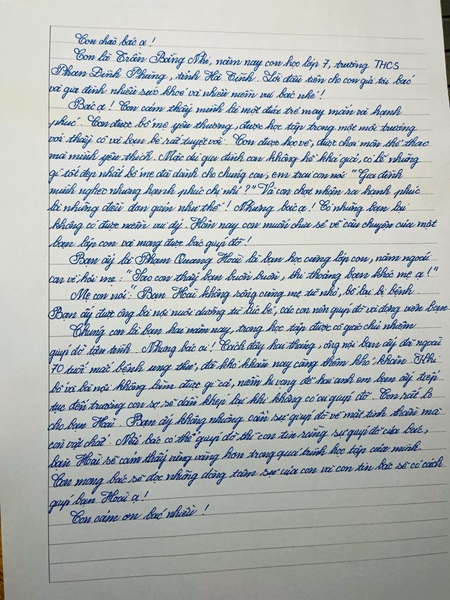 Con chào bác ạ!
Con là Trần Băng Nhi, năm nay con học lớp 7, trường THCS
Phan Đình Phùng, tỉnh Hà Tĩnh. Lời đầu tiên cho con gửi tới bác
và gia đình nhiều sức khoẻ và nhiều niềm vui bác nhé!
Bác ạ! Con cảm thấy mình là một đứa trẻ may mắn và hạnh
phúc. Con được bố mẹ yêu thương, được học tập trong một môi trường
với thầy cô và bạn bè rất tuyệt vời. Con được học vẽ, được chơi môn thể thao
mà mình yêu thích. Mặc dù gia đình con không hề khá giả, có lẽ những
gì tốt đẹp nhất bố mẹ đã dành cho chúng con, em trai con nói: "Gia đình
mình nghèo nhưng hạnh phúc chị nhỉ?" Và con chợt nhận ra hạnh phúc
là những điều đơn giản như thế! Nhưng bác ạ! Có những bạn lại
không có được niềm vui ấy. Hôm nay con muốn chia sẻ về câu chuyện của một
bạn lớp con và mong được bác giúp đỡ!
Bạn ấy là Phạm Quang Hoài là bạn học cùng lớp con, năm ngoái
con về hỏi mẹ: "Sao con thấy bạn buồn buồn, thi thoảng bạn khó mẹ ạ!"
Mẹ con nói: "Bạn Hoài không sống cùng mẹ từ nhỏ, bố lại bị bệnh
Bạn ấy được ông bà nội nuôi dưỡng từ lúc bé, các con nên giúp đỡ và động viên bạn
Chúng con là bạn hai năm nay, trong học tập được cô giáo chủ nhiệm
giúp đỡ tận tình. Nhưng bác ạ! Cách đây hai tháng ông nội bạn ấy đã ngoài
70 tuổi mắc bệnh ung thư, đã khó khăn nay càng thêm khó khăn. Khi
bố và bà nội không làm được gì cả, niềm hi vọng để hai anh em bạn ấy tiếp
tục đến trường con sợ sẽ dần khép lại khi không có sự giúp đỡ. Con rất lo
cho bạn Hoài. Bạn ấy không những cần sự giúp đỡ về mặt tinh thần mà
còn vật chất. Nếu bác có thể giúp đỡ thì con tin rằng sự giúp đỡ của bác,
bạn Hoài sẽ cảm thấy vững vàng hơn trong quá trình học tập của mình.
Con mong bác sẽ đọc những dòng tâm sự của con và con tin bác sẽ có cách
giúp bạn Hoài ạ!
Con cảm ơn bác nhiều!